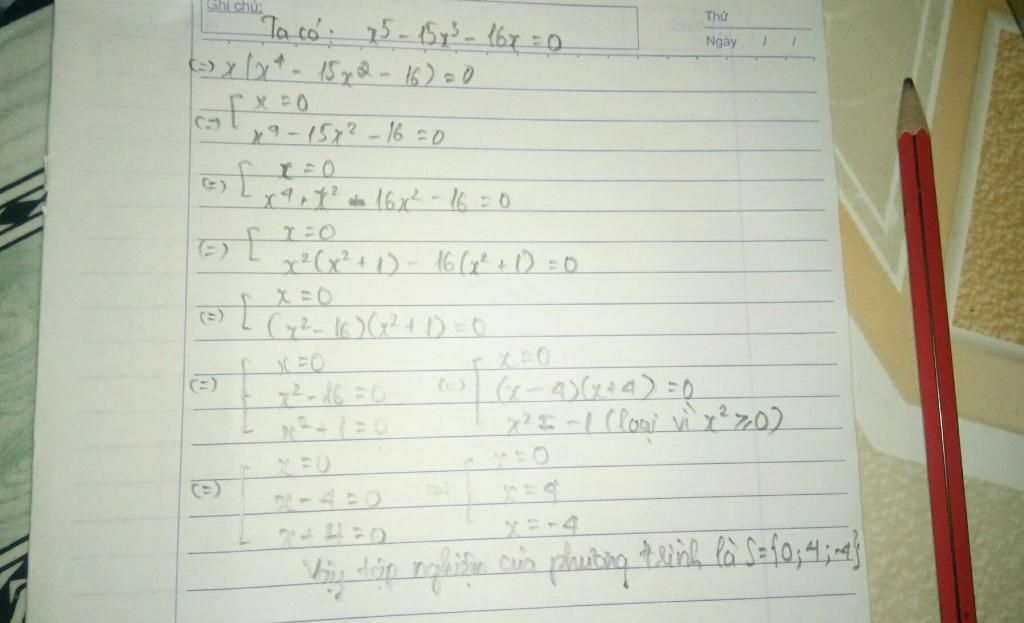 Ghi chú:
Thứ
Ngày / /
Ta có: x⁵ - 15x³ - 16x = 0
(=) x(x⁴ - 15x² - 16) = 0
(=) [ x = 0
x⁴ - 15x² - 16 = 0
(=) [ x = 0
x⁴ + x² - 16x² - 16 = 0
(=) [ x = 0
x²(x² + 1) - 16(x² + 1) = 0
(=) [ x = 0
(x² - 16)(x² + 1) = 0
(=) [ x = 0 (=) [ x = 0
x² - 16 = 0 (x - 4)(x + 4) = 0
x² + 1 = 0 x² = -1 (loại vì x² ⩾ 0)
(=) [ x = 0 (=) [ x = 0
x - 4 = 0 x = 4
x + 4 = 0 x = -4
Vậy tập nghiệm của phương trình là S = {0; 4; -4}